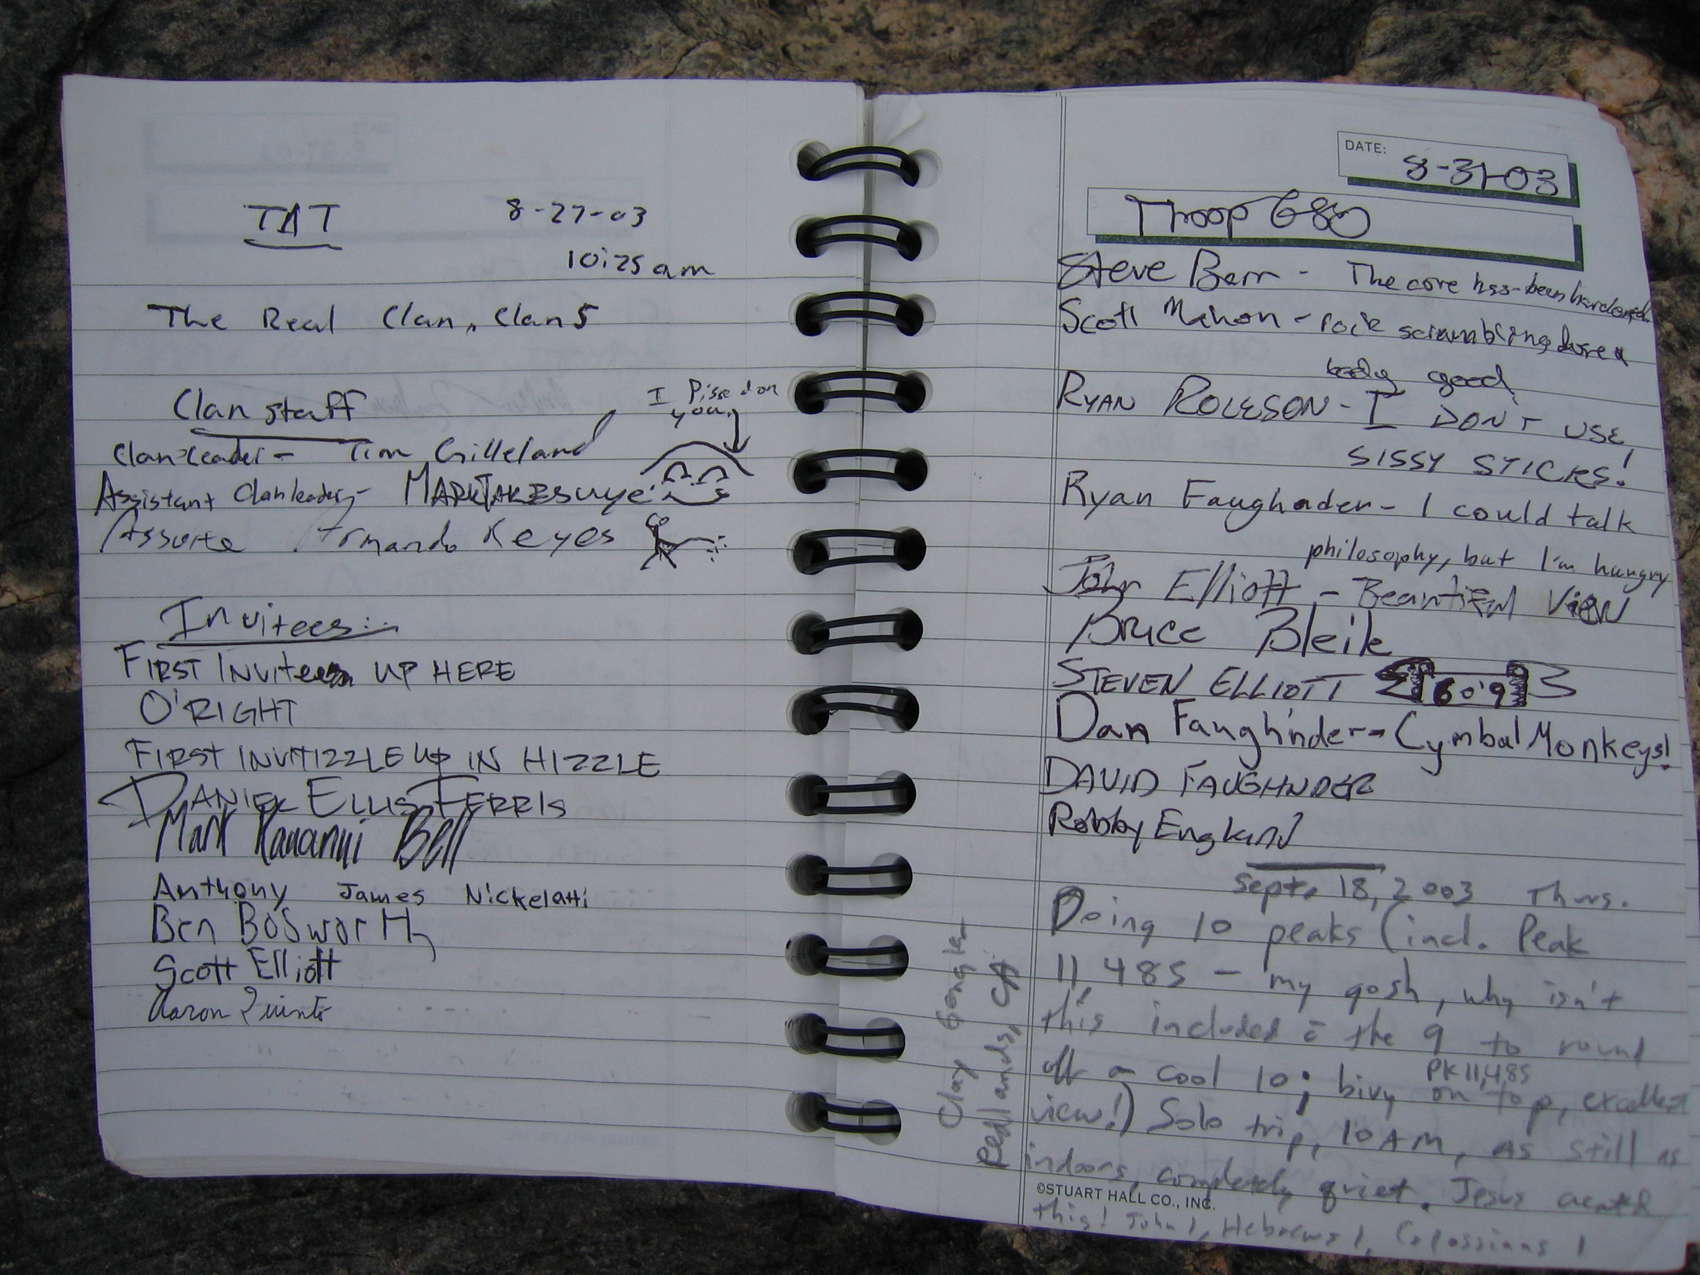 TAT 8-27-03
10:25 am
The Real Clan, Clan 5
Clan staff
I Pissed on
you
Clan Leader - Tim Gilleland
Assistant Clan leader - MARK TAKESUYE
Armando Keyes
Invitees:
FIRST INVITEES UP HERE
O'RIGHT
FIRST INVITIZZLE UP IN HIZZLE
DANIEL ELLIS FERRIS
Mark Bell
Anthony James Nickelatti
Ben Bosworth
Scott Elliott
Aaron
DATE: 8-31-03
Troop 680
Steve Barr - The core has been hardened
Scott Mahon - rock scrambling does a
body good
RYAN ROLESON - I DON'T USE
SISSY STICKS!
Ryan Faughnder - I could talk
philosophy, but I'm hungry
John Elliott - Beautiful View
Bruce Bleik
STEVEN ELLIOTT
Dan Faughnder - Cymbal Monkeys!
DAVID FAUGHNDER
Robby England
Sept. 18, 2003 Thurs.
Doing 10 peaks (incl. Peak
11,485 - my gosh, why isn't
this included c̄ the 9 to round
off a cool 10; bivy on top, excellent
PK 11,485
view!) Solo trip, 10 AM, as still as
indoors, completely quiet. Jesus created
this! John 1, Hebrews 1, Colossians 1
Clay
Redlands, CA
©STUART HALL CO., INC.